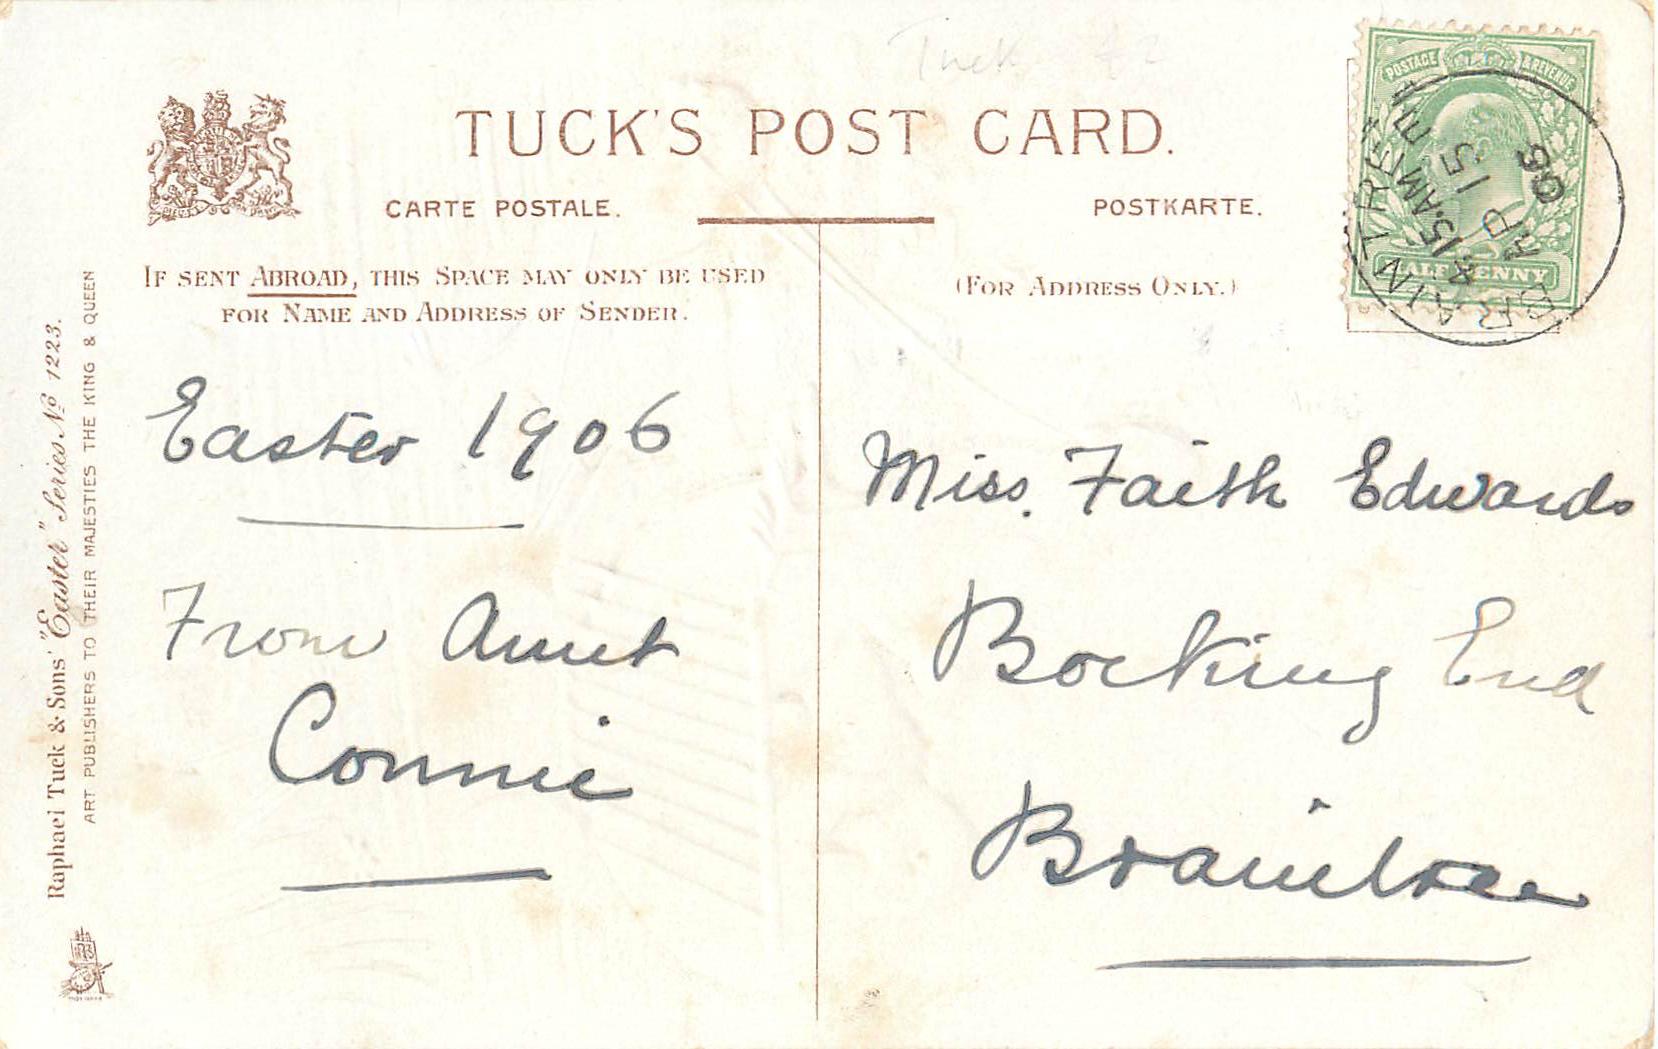 Tuck
TUCK'S POST CARD.
CARTE POSTALE.
POSTKARTE.
IF SENT ABROAD, THIS SPACE MAY ONLY BE USED
FOR NAME AND ADDRESS OF SENDER.
(FOR ADDRESS ONLY.)
POSTAGE & REVENUE
HALFPENNY
BRAINTREE
15 AM
AP 15
06
Easter 1906
From Aunt
Connie
Miss. Faith Edwards
Bocking End
Braintree
Raphael Tuck & Sons' "Easter" Series Nº 1223.
ART PUBLISHERS TO THEIR MAJESTIES THE KING & QUEEN